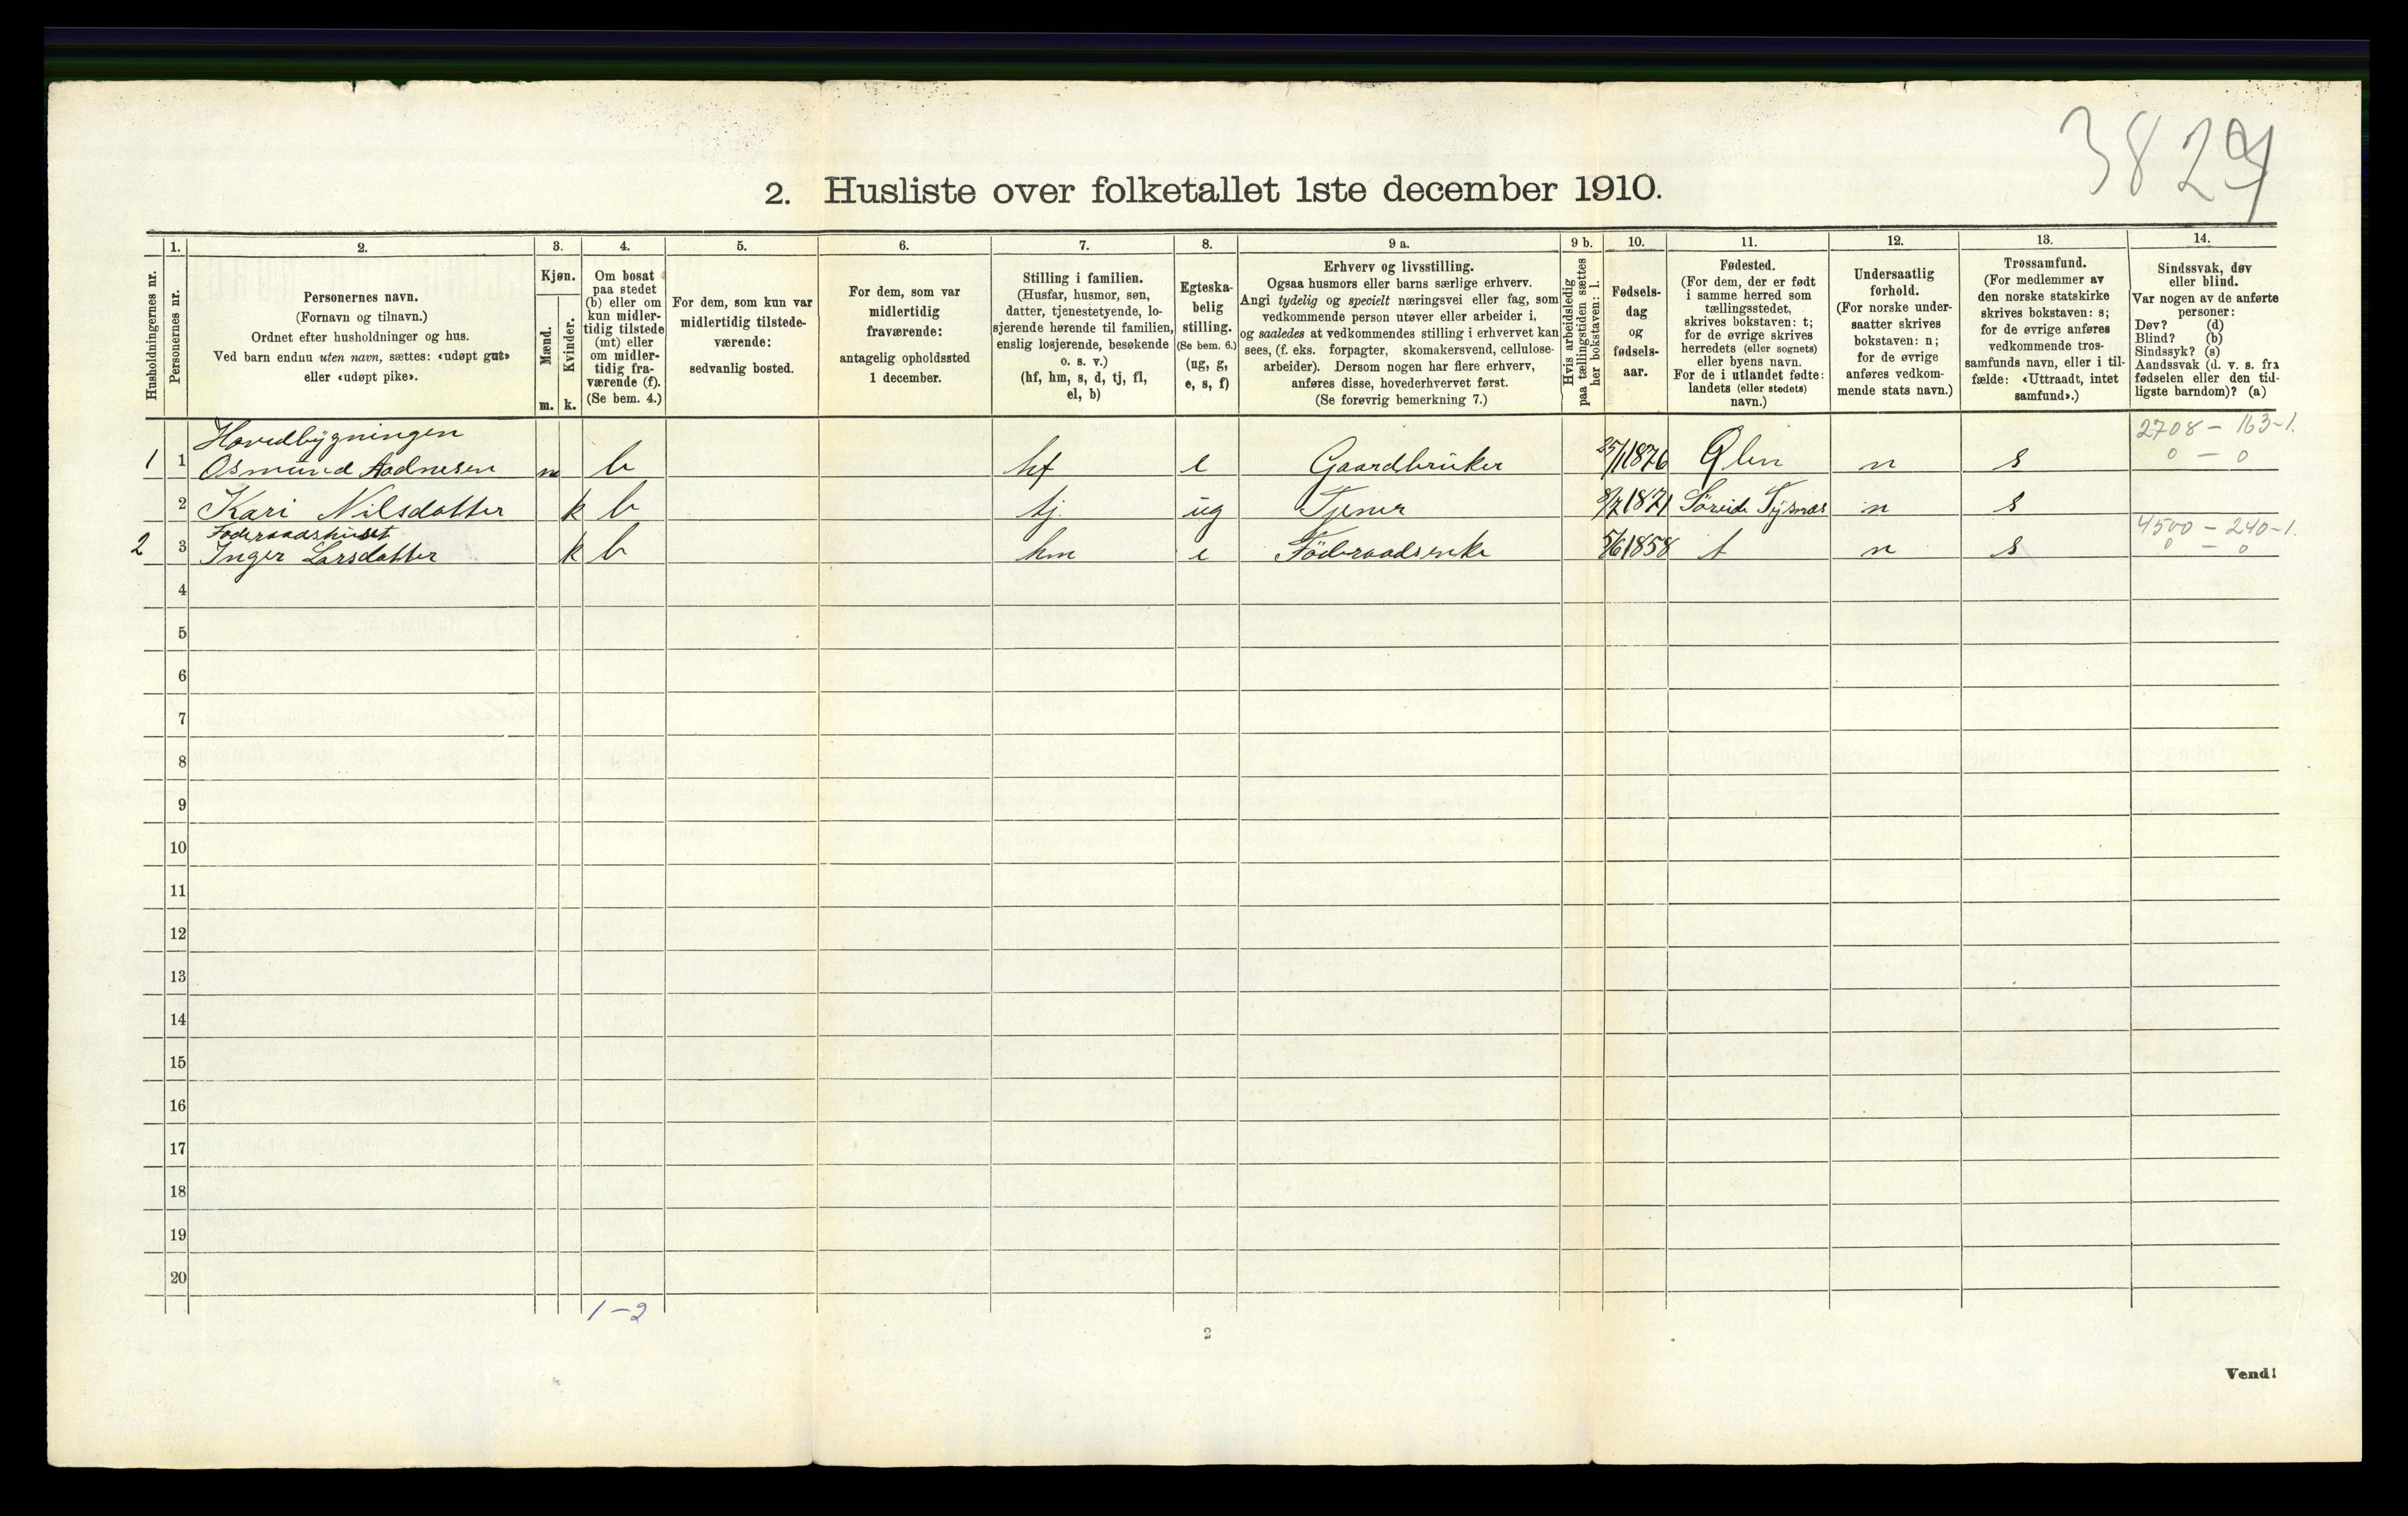 3829
2. Husliste over folketallet 1ste december 1910.
Husholdningernes nr.
1.
Personernes nr.
2.
Personernes navn.
(Fornavn og tilnavn.)
Ordnet efter husholdninger og hus.
Ved barn endnu uten navn, sættes: «udøpt gut»
eller «udøpt pike».
3.
Kjøn.
Mænd.
Kvinder.
m. k.
4.
Om bosat
paa stedet
(b) eller om
kun midler-
tidig tilstede
(mt) eller
om midler-
tidig fra-
værende (f).
(Se bem. 4.)
5.
For dem, som kun var
midlertidig tilstede-
værende:
sedvanlig bosted.
6.
For dem, som var
midlertidig
fraværende:
antagelig opholdssted
1 december.
7.
Stilling i familien.
(Husfar, husmor, søn,
datter, tjenestetyende, lo-
sjerende hørende til familien,
enslig losjerende, besøkende
o. s. v.)
(hf, hm, s, d, tj, fl,
el, b)
8.
Egteska-
belig
stilling.
(Se bem. 6.)
(ug, g,
e, s, f)
9 a.
Erhverv og livsstilling.
Ogsaa husmors eller barns særlige erhverv.
Angi tydelig og specielt næringsvei eller fag, som
vedkommende person utøver eller arbeider i,
og saaledes at vedkommendes stilling i erhvervet kan
sees, (f. eks. forpagter, skomakersvend, cellulose-
arbeider). Dersom nogen har flere erhverv,
anføres disse, hovederhvervet først.
(Se forøvrig bemerkning 7.)
9 b.
Hvis arbeidsledig
paa tællingstiden sættes
her bokstaven: l.
10.
Fødsels-
dag
og
fødsels-
aar.
11.
Fødested.
(For dem, der er født
i samme herred som
tællingsstedet,
skrives bokstaven: t;
for de øvrige skrives
herredets (eller sognets)
eller byens navn.
For de i utlandet fødte:
landets (eller stedets)
navn.)
12.
Undersaatlig
forhold.
(For norske under-
saatter skrives
bokstaven: n;
for de øvrige
anføres vedkom-
mende stats navn.)
13.
Trossamfund.
(For medlemmer av
den norske statskirke
skrives bokstaven: s;
for de øvrige anføres
vedkommende tros-
samfunds navn, eller i til-
fælde: «Uttraadt, intet
samfund».)
14.
Sindssvak, døv
eller blind.
Var nogen av de anførte
personer:
Døv? (d)
Blind? (b)
Sindssyk? (s)
Aandssvak (d. v. s. fra
fødselen eller den tid-
ligste barndom)? (a)
Hovedbygningen 2708 - 163-1.
1 1 Osmund Aadnesen m b hf e Gaardbruker 25/11 1876 Ølen n s 0 - 0
2 Kari Nilsdatter k b tj ug Tjener 8/7 1871 Søreide Tysnæs n s
Föderaadshuset 4500 - 240-1.
2 3 Inger Larsdatter k b hm e Föderaadsenke 5/6 1858 t n s 0 - 0
4
5
6
7
8
9
10
11
12
13
14
15
16
17
18
19
20
1-2
2
Vend!